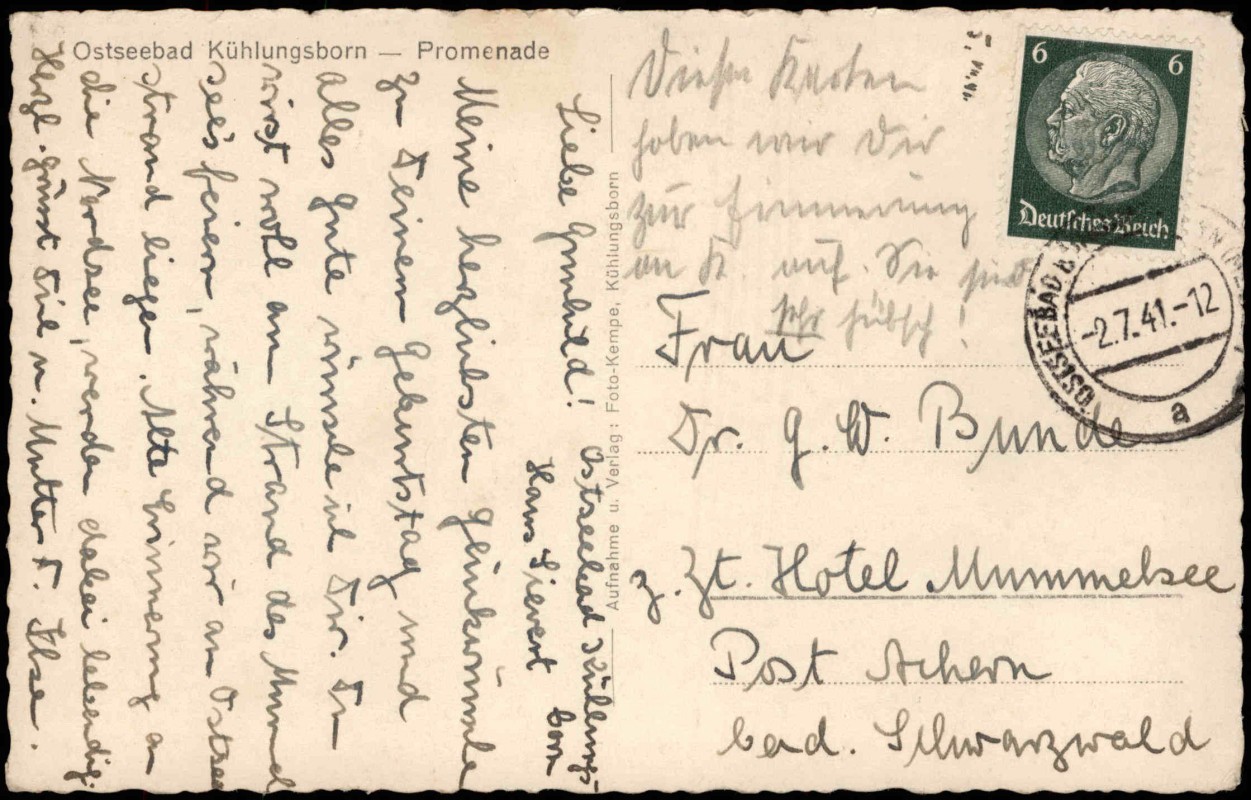 Ostseebad Kühlungsborn — Promenade
Ostseebad Kühlungs-
born
Haus Sievert
Liebe Gunhild!
Meine herzlichsten Glückwünsche
zu Deinem Geburtstag und
alles Gute wünsche ich Dir. Du
wirst wohl am Strand des Mumel
see's feiern, während wir am Ostsee
strand liegen. Alte Erinnerung an
die Nordsee, werden dabei lebendig.
Herzl. grüsst Dich u. Mutter D. Ilse.
Aufnahme u. Verlag: Foto-Kempe, Kühlungsborn
Diese Karten
haben wir Dir
zur Erinnerung
an K. auf. Sie sind
sehr hübsch!
6 6
Deutsches Reich
OSTSEEBAD
-2.7.41.-12
a
Frau
Dr. G. W. Bunde
z. Zt. Hotel Mummelsee
Post Achern
bad. Schwarzwald